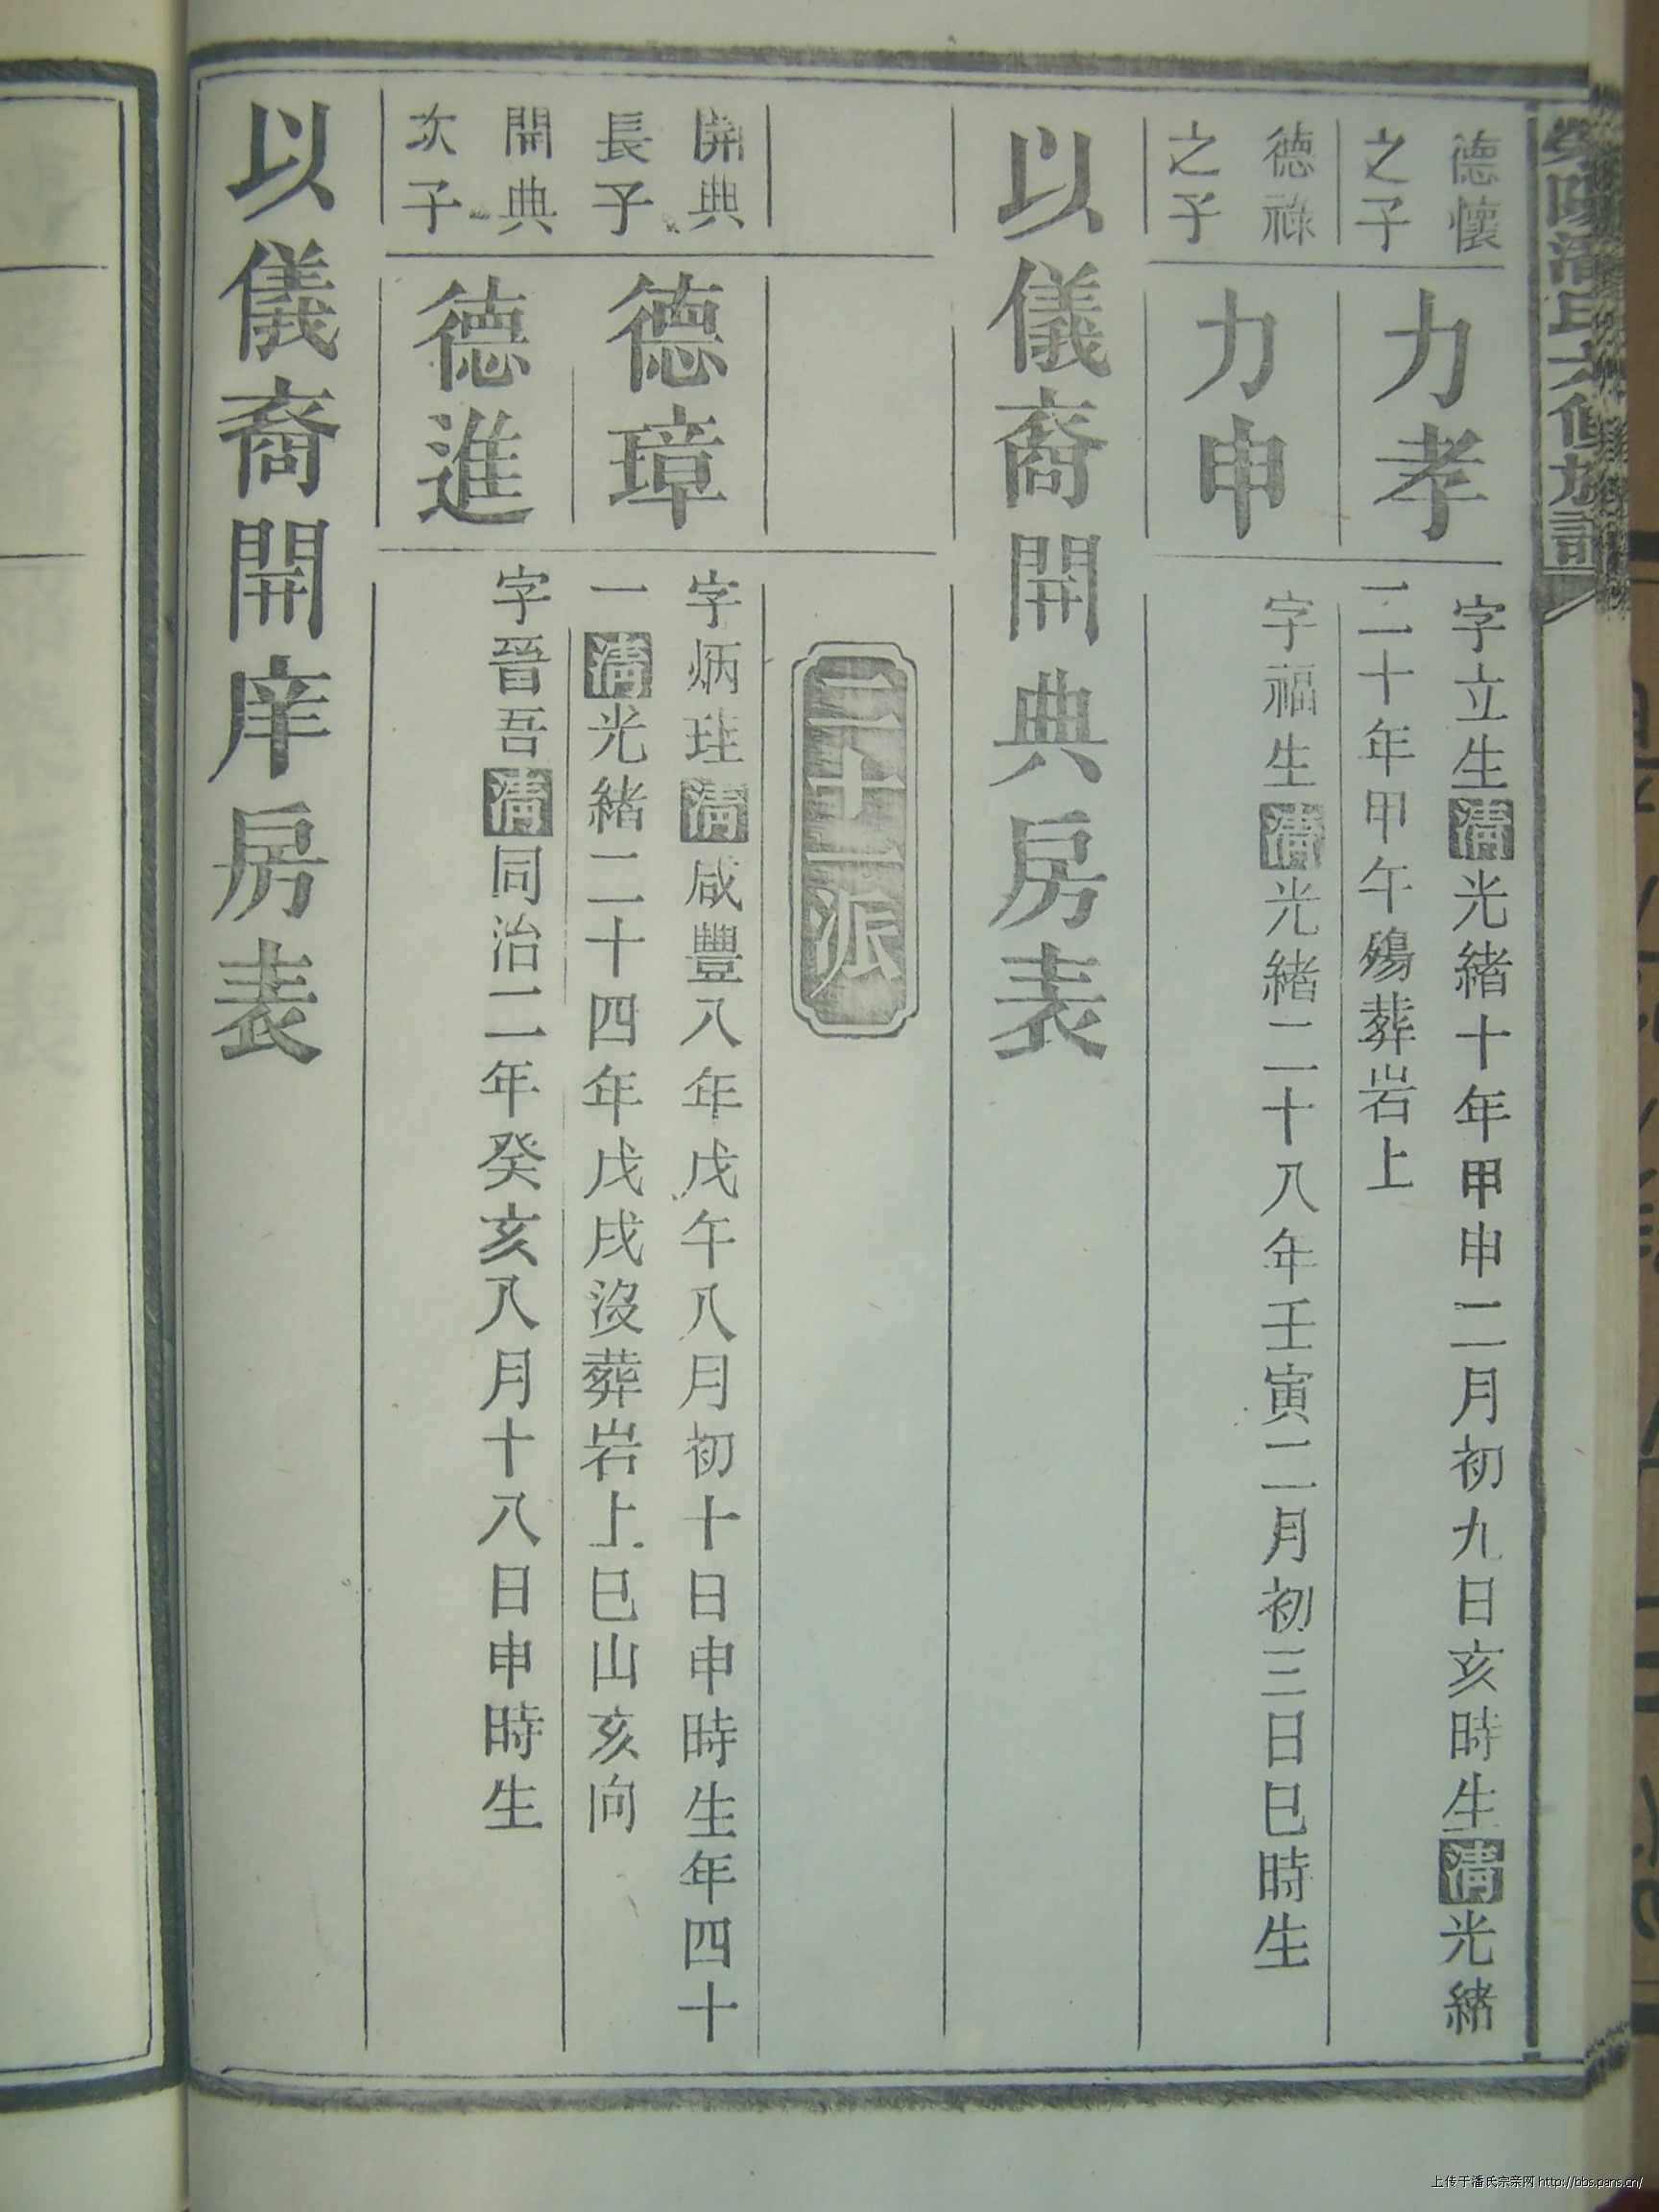 滎陽潘氏六修族譜
德懷
之子
力孝
字立生清光緒十年甲申二月初九日亥時生清光緒
二十年甲午殤葬岩上
德祿
之子
力申
字福生清光緒二十八年壬寅二月初三日巳時生
以儀裔開典房表
二十一派
開典
長子
德璋
字炳珪清咸豐八年戊午八月初十日申時生年四十
一清光緒二十四年戊戌沒葬岩上巳山亥向
開典
次子
德進
字晉吾清同治二年癸亥八月十八日申時生
以儀裔開庠房表
上传于潘氏宗亲网 http://bbs.pans.cn/